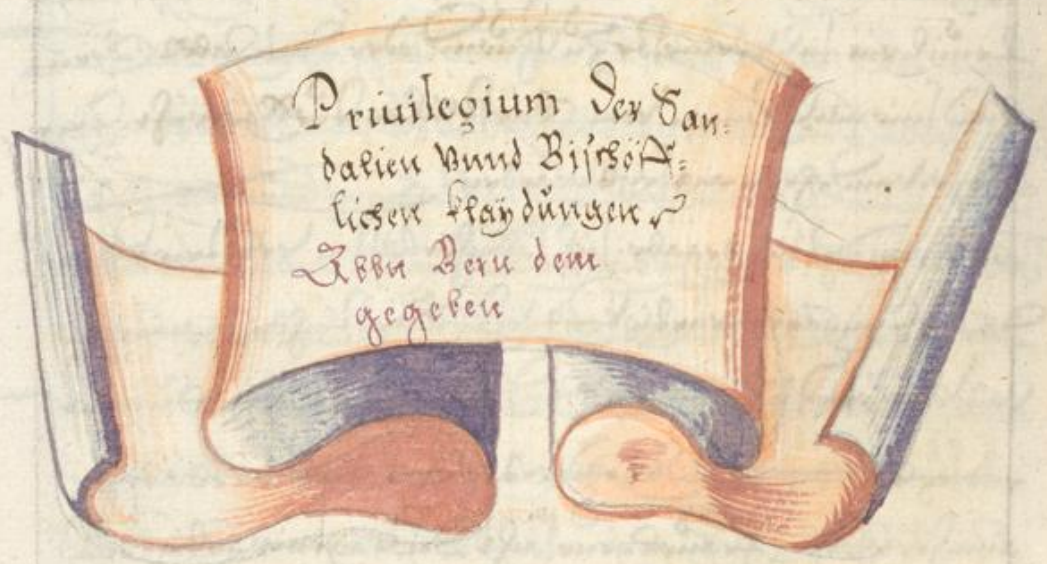 Priuilegium Der San:
dalien Vnnd Bischöff:
lichen klaydüngen
Abbt Bern dem
gegeben